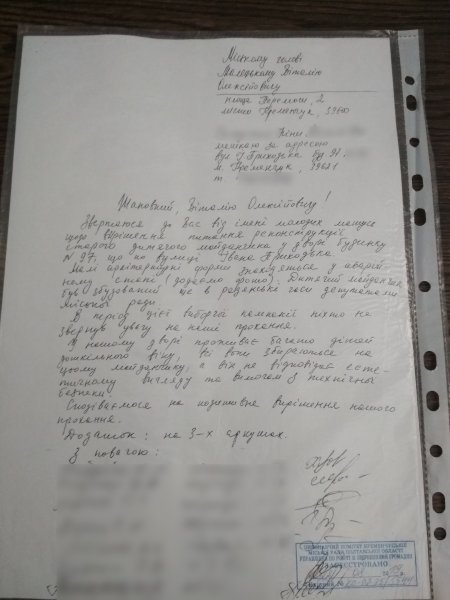 Міському голові
Малецькому Віталію
Олексійовичу
площа Перемоги, 2
місто Кременчук, 39600
мешкаю за адресою
вул. І. Приходька буд 97,
м. Кременчук, 39621
т.
Шановний, Віталію Олексійовичу!
Звертаюся до Вас від імені молодих мамусь
щодо вирішення питання реконструкції
старого дитячого майданчика у дворі будинку
№ 97, що по вулиці Івана Приходька.
Малі архітектурні форми знаходяться у аварій-
ному стані (додаємо фото). Дитячий майданчик
був збудований ще в радянські часи депутатами
міської ради.
В період цієї виборчої компанії ніхто не
звернув увагу на наші прохання.
В нашому дворі проживає багато дітей
дошкільного віку, всі вони збираються на
цьому майданчику, а він не відповідає есте-
тичному вигляду та вимогам з технічної
безпеки.
Сподіваємося на позитивне вирішення нашого
прохання.
Додаток: на 3-х аркушах.
З повагою:
ВИКОНАВЧИЙ КОМІТЕТ КРЕМЕНЧУЦЬКОЇ
МІСЬКОЇ РАДИ ПОЛТАВСЬКОЇ ОБЛАСТІ
УПРАВЛІННЯ ПО РОБОТІ ЗІ ЗВЕРНЕННЯМИ ГРОМАДЯН
ЗАРЕЄСТРОВАНО